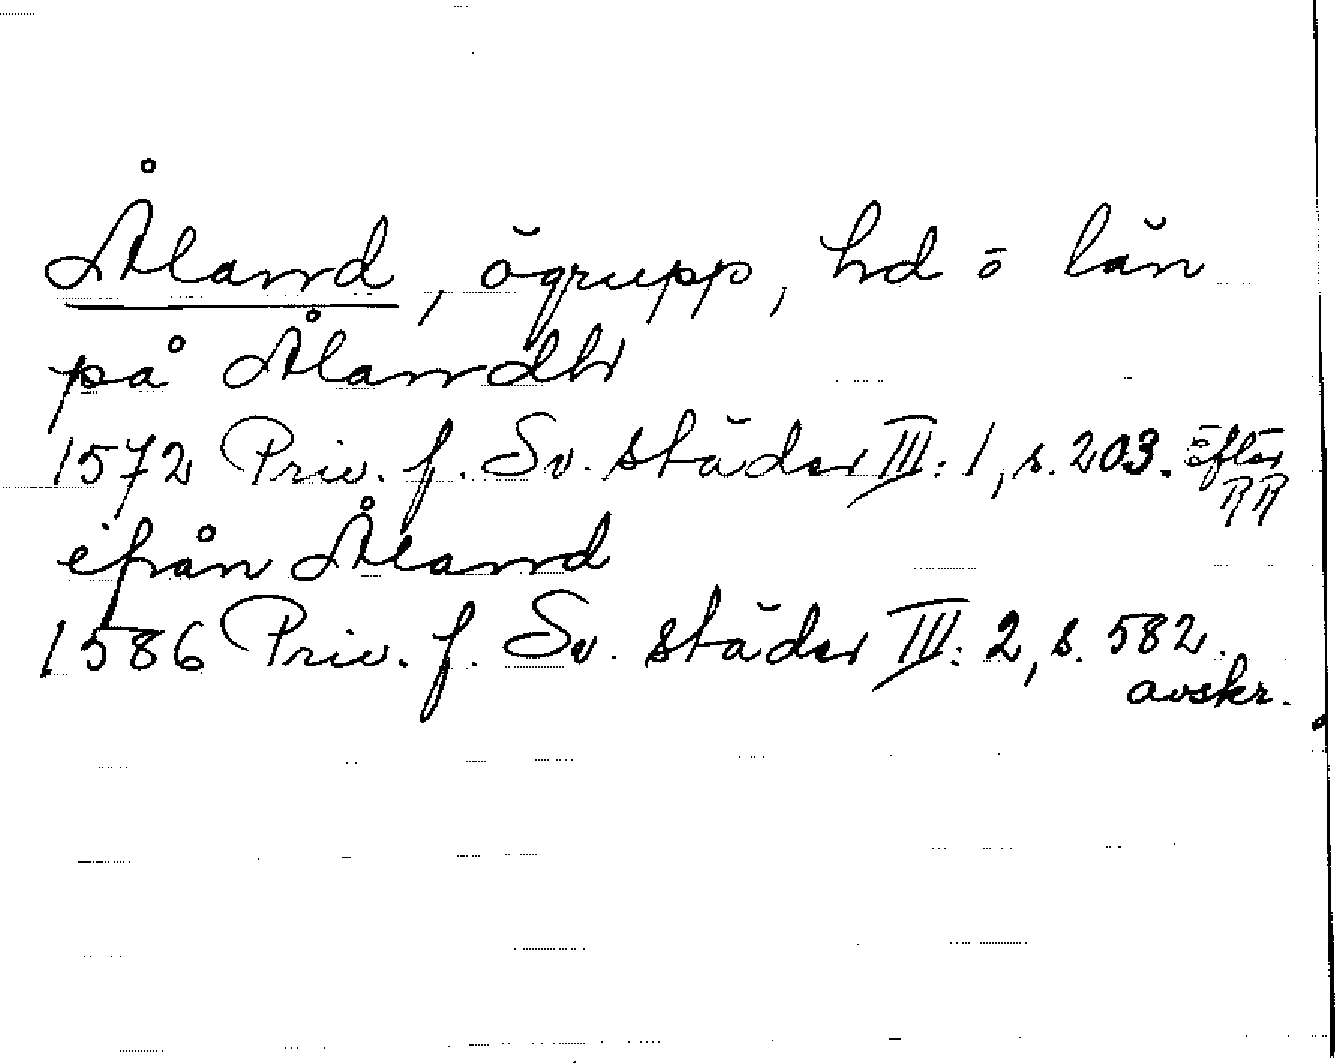 Åland, ögrupp, hd o län
på Ålandh
1572 Priv. f. Sv. städer III: 1, s. 203. Efter RR
ifrån Åland
1586 Priv. f. Sv. städer III: 2, s. 582. avskr.